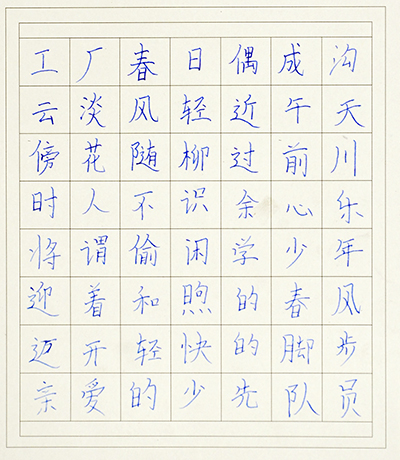 工厂春日偶成沟
云淡风轻近午天
傍花随柳过前川
时人不识余心乐
将谓偷闲学少年
迎着和煦的春风
迈开轻快的脚步
亲爱的少先队员